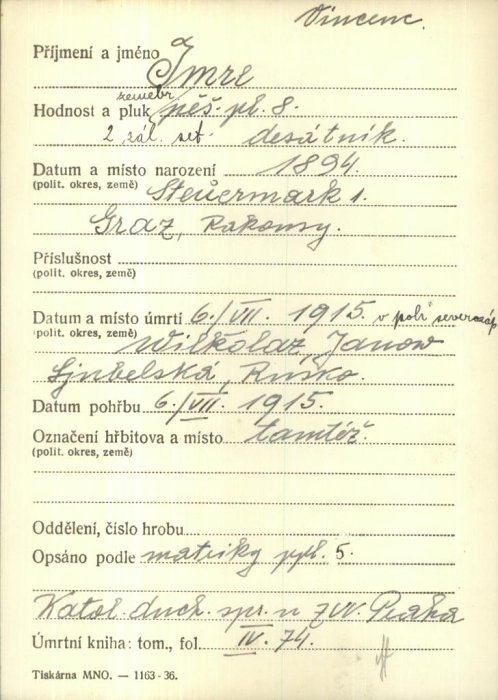 Vincenc.
Příjmení a jméno Imre
zeměbr.
Hodnost a pluk pěš. pl. 8.
2 zál. set. desátník.
Datum a místo narození 1894.
(polit. okres, země) Steuermark 1.
Graz, Rakousy.
Příslušnost
(polit. okres, země)
Datum a místo úmrtí 6./VII. 1915. v poli severozáp
(polit. okres, země) Wilkolaz, Janow
Ljubelská, Rusko.
Datum pohřbu 6./VII. 1915.
Označení hřbitova a místo tamtéž.
(polit. okres, země)
Oddělení, číslo hrobu
Opsáno podle matriky ppl. 5.
Katol. duch. spr. n ZVV. Praha
Úmrtní kniha: tom., fol. IV. 74.
Tiskárna MNO. — 1163-36.